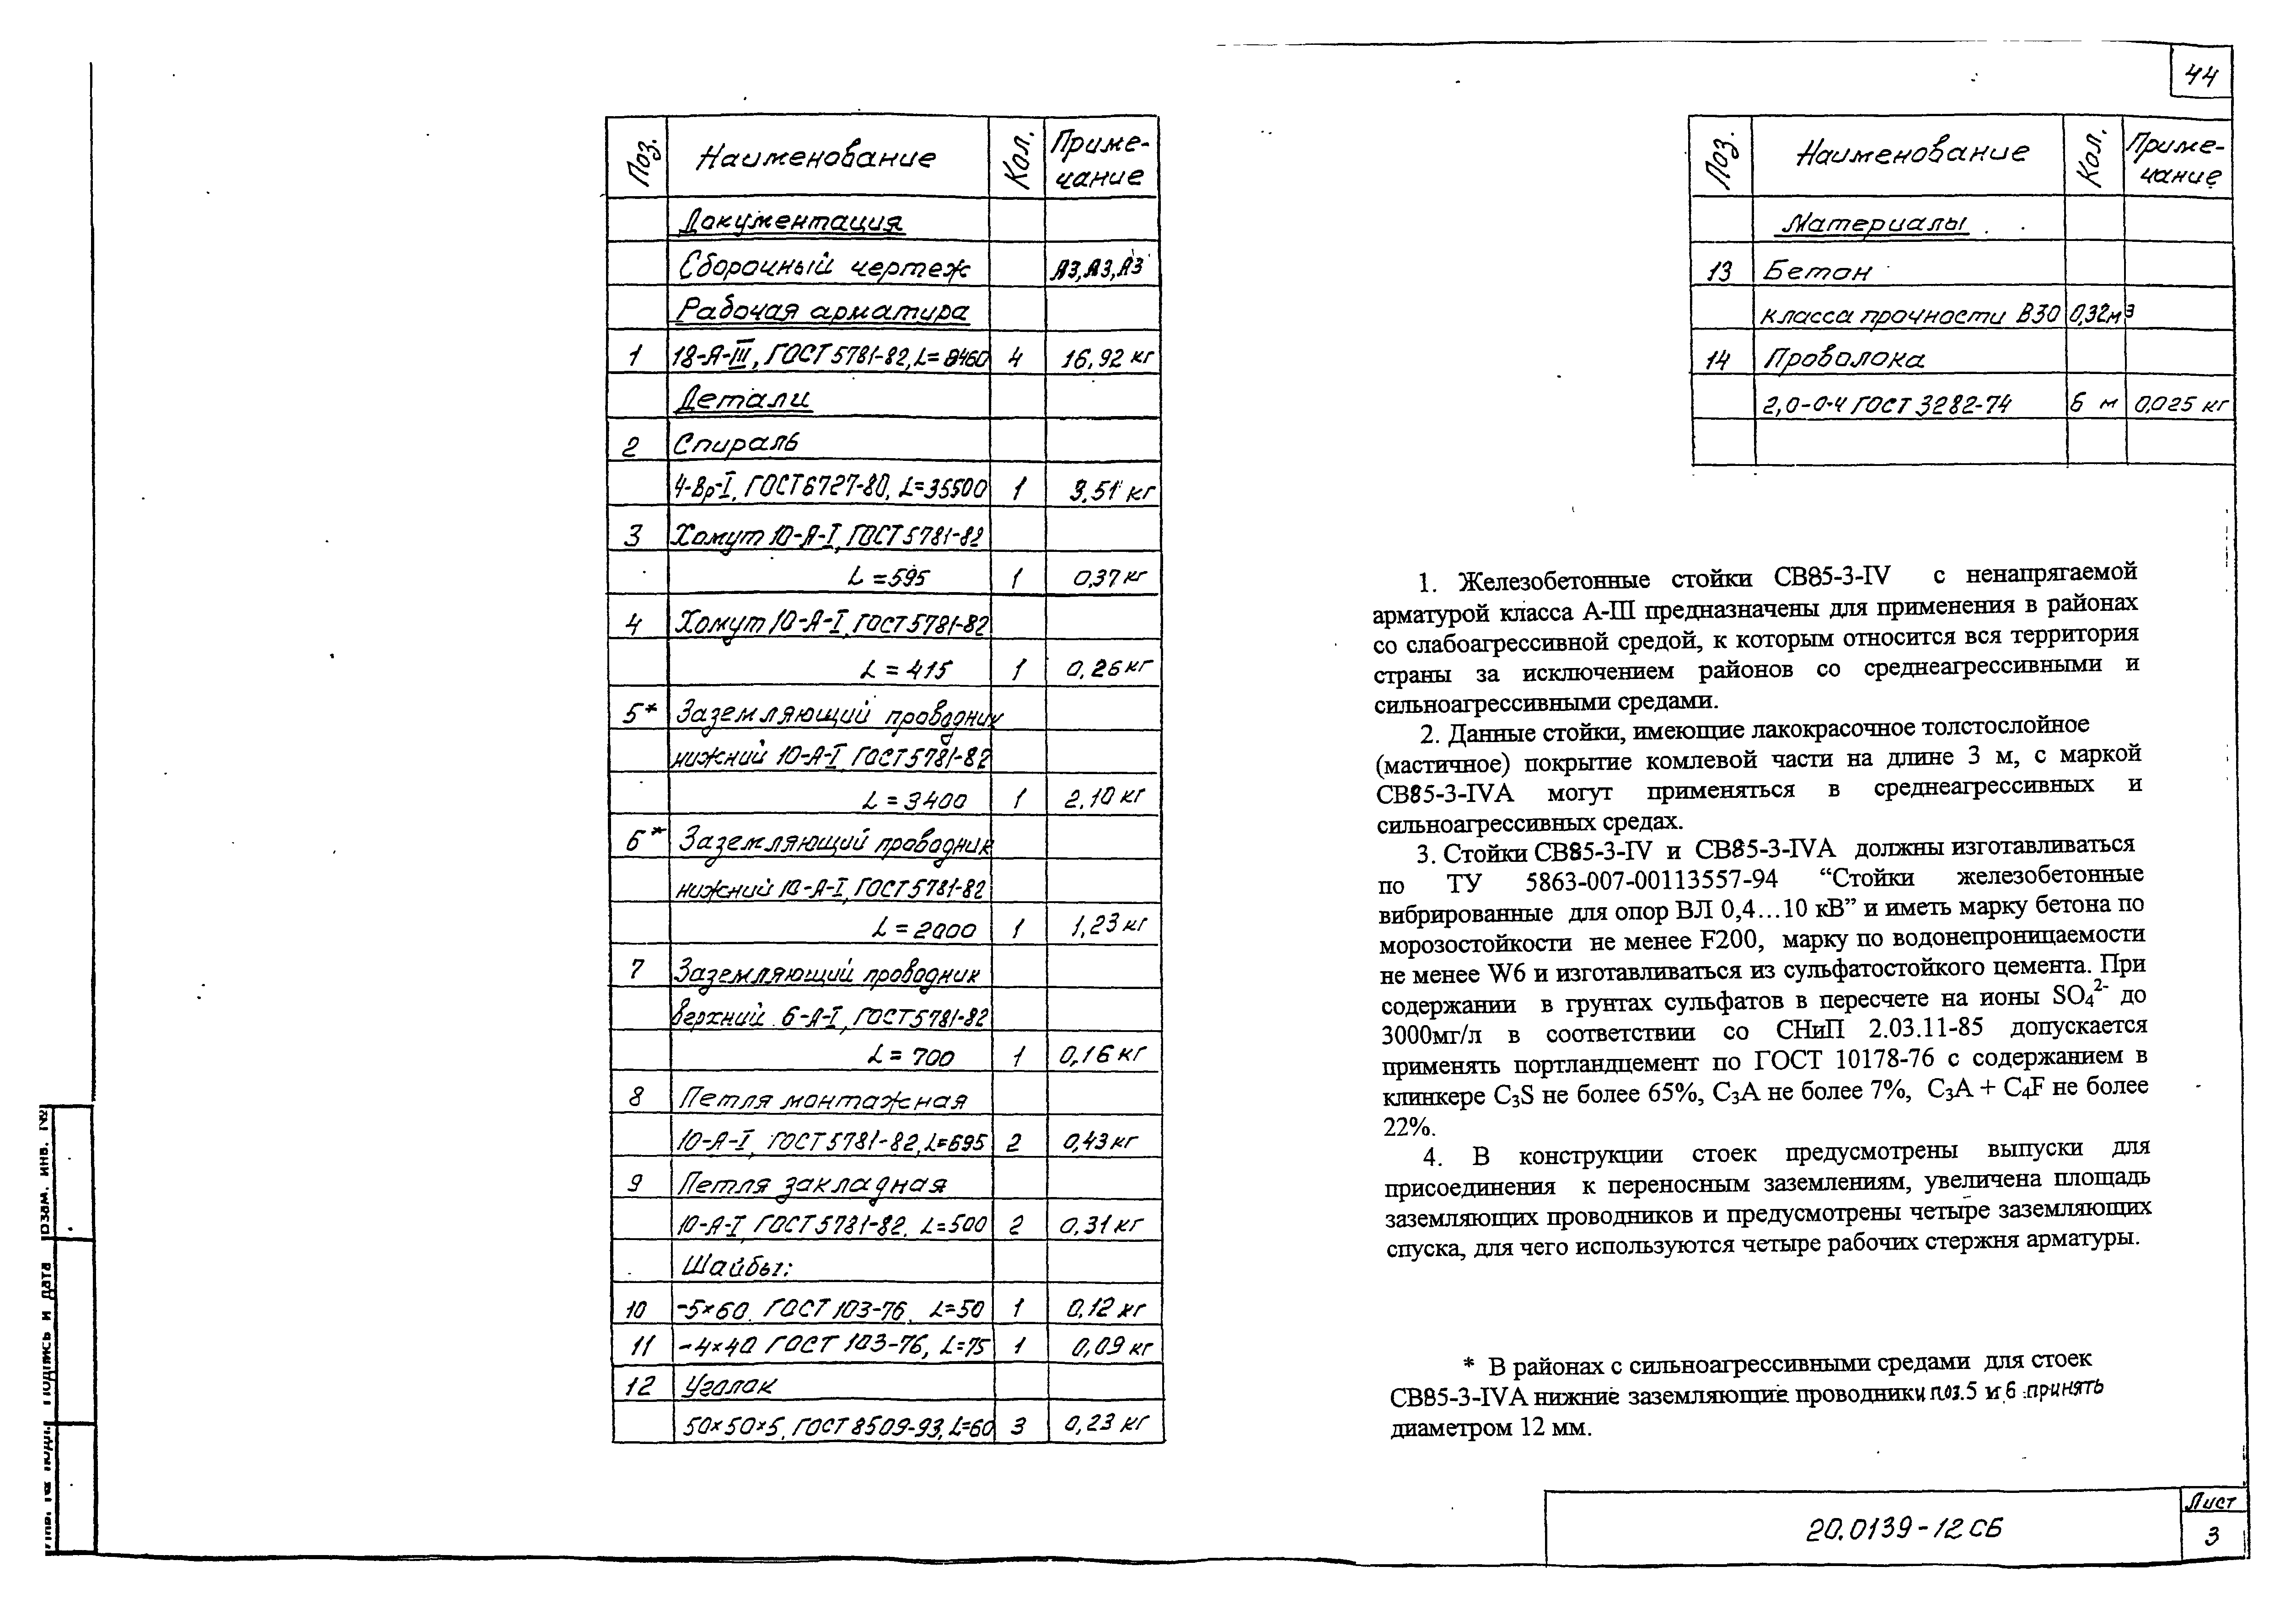 44
Поз. Наименование Кол. Приме-
чание
Документация
Сборочный чертеж А3,А3,А3
Рабочая арматура
1 18-А-III, ГОСТ 5781-82, L=8460 4 16,92 кг
Детали
2 Спираль
4-Вр-I, ГОСТ 6727-80, L=35500 1 3,51 кг
3 Хомут 10-А-I, ГОСТ 5781-82
L=595 1 0,37 кг
4 Хомут 10-А-I, ГОСТ 5781-82
L=415 1 0,26 кг
5* Заземляющий проводник
нижний 10-А-I ГОСТ 5781-82
L=3400 1 2,10 кг
6* Заземляющий проводник
нижний 10-А-I, ГОСТ 5781-82
L=2000 1 1,23 кг
7 Заземляющий проводник
верхний 6-А-I, ГОСТ 5781-82
L=700 1 0,16 кг
8 Петля монтажная
10-А-I, ГОСТ 5781-82, L=695 2 0,43 кг
9 Петля закладная
10-А-I, ГОСТ 5781-82, L=500 2 0,31 кг
Шайбы:
10 -5×60 ГОСТ 103-76, L=50 1 0,12 кг
11 -4×40 ГОСТ 103-76, L=75 1 0,09 кг
12 Уголок
50×50×5, ГОСТ 8509-93, L=60 3 0,23 кг
Поз. Наименование Кол. Приме-
чание
Материалы
13 Бетон
класса прочности В30 0,32м³
14 Проволока
2,0-0-Ч ГОСТ 3282-74 6 м 0,025 кг
1. Железобетонные стойки СВ85-3-IV с ненапрягаемой
арматурой класса А-III предназначены для применения в районах
со слабоагрессивной средой, к которым относится вся территория
страны за исключением районов со среднеагрессивными и
сильноагрессивными средами.
2. Данные стойки, имеющие лакокрасочное толстослойное
(мастичное) покрытие комлевой части на длине 3 м, с маркой
СВ85-3-IVА могут применяться в среднеагрессивных и
сильноагрессивных средах.
3. Стойки СВ85-3-IV и СВ85-3-IVА должны изготавливаться
по ТУ 5863-007-00113557-94 “Стойки железобетонные
вибрированные для опор ВЛ 0,4…10 кВ” и иметь марку бетона по
морозостойкости не менее F200, марку по водонепроницаемости
не менее W6 и изготавливаться из сульфатостойкого цемента. При
содержании в грунтах сульфатов в пересчете на ионы SO₄²⁻ до
3000мг/л в соответствии со СНиП 2.03.11-85 допускается
применять портландцемент по ГОСТ 10178-76 с содержанием в
клинкере C₃S не более 65%, C₃A не более 7%, C₃A + C₄F не более
22%.
4. В конструкции стоек предусмотрены выпуски для
присоединения к переносным заземлениям, увеличена площадь
заземляющих проводников и предусмотрены четыре заземляющих
спуска, для чего используются четыре рабочих стержня арматуры.
* В районах с сильноагрессивными средами для стоек
СВ85-3-IVА нижние заземляющие проводники поз.5 и 6 принять
диаметром 12 мм.
20.0139-12СБ
Лист
3
Взам. инв. №
Подпись и дата